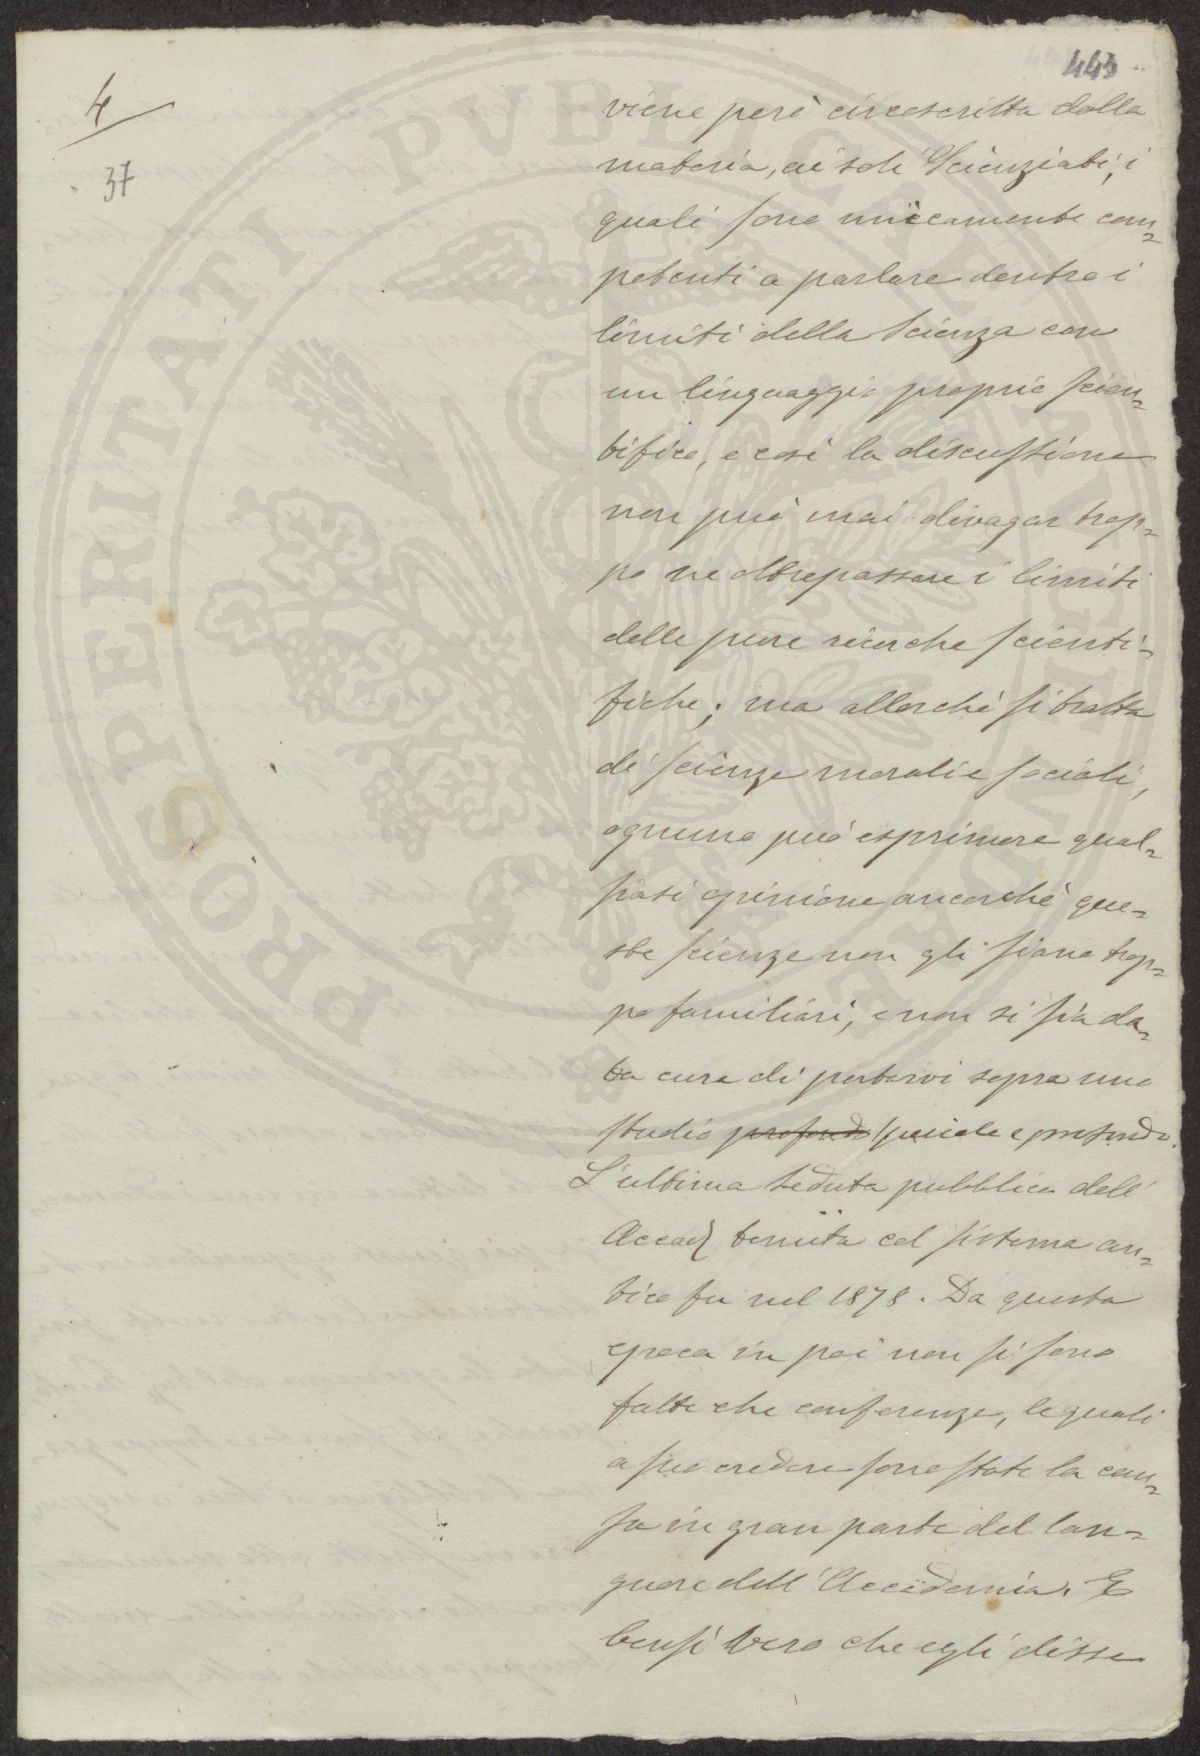 443
4
37
viene però circoscritta dalla
materia, ai soli Scienziati, i
quali sono unicamente com=
petenti a parlare dentro i
limiti della scienza con
un linguaggio proprio scien=
tifico, e così la discussione
non può mai divagar trop=
po ne oltrepassare i limiti
delle pure ricerche scienti=
fiche; ma allorchè si tratta
di scienze morali e sociali,
ognuno può esprimere qual=
siasi opinione ancorchè que=
ste scienze non gli siano trop=
po familiari, e non si sia da=
ta cura di portarvi sopra uno
studio profondo speciale e profondo.
L'ultima seduta pubblica dell'
Accad tenuta col sistema an=
tico fu nel 1878. Da questa
epoca in poi non si sono
fatte che conferenze, le quali
a suo credere sono state la cau=
sa in gran parte del lan=
guore dell'Accademia. E
bensì vero che egli disse
PROSPERITATI PVBLICAE